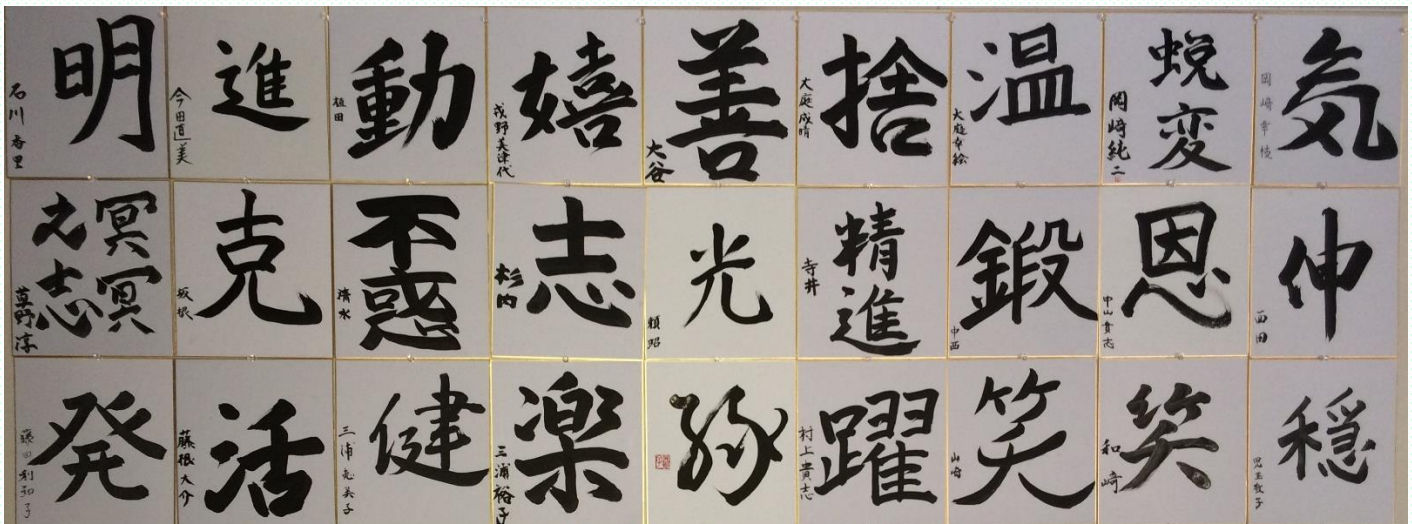 明
石川 香里
進
今田直美
動
植田
嬉
我野美津代
善
大谷
捨
大庭成晴
温
大庭幸絵
蜕変
岡崎純二
気
岡崎幸枝
冥冥
之志
草野淳
克
坂根
不惑
清水
志
杉内
光
頼昭
精進
寺井
鍛
中西
恩
中山貴志
伸
西田
発
藤田利和子
活
藤根大介
健
三浦恵美子
楽
三浦裕子
緣
躍
村上貴志
笑
山崎
笑
和崎
穏
児玉牧子